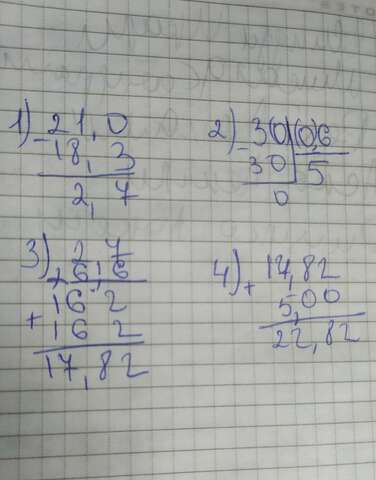 1) 21,0
- 18,3
2,7
2) 3(0 (0,6
- 30 5
0
3) 2,7
× 6,6
16 2
+ 16 2
17,82
4) 17,82
+ 5,00
22,82